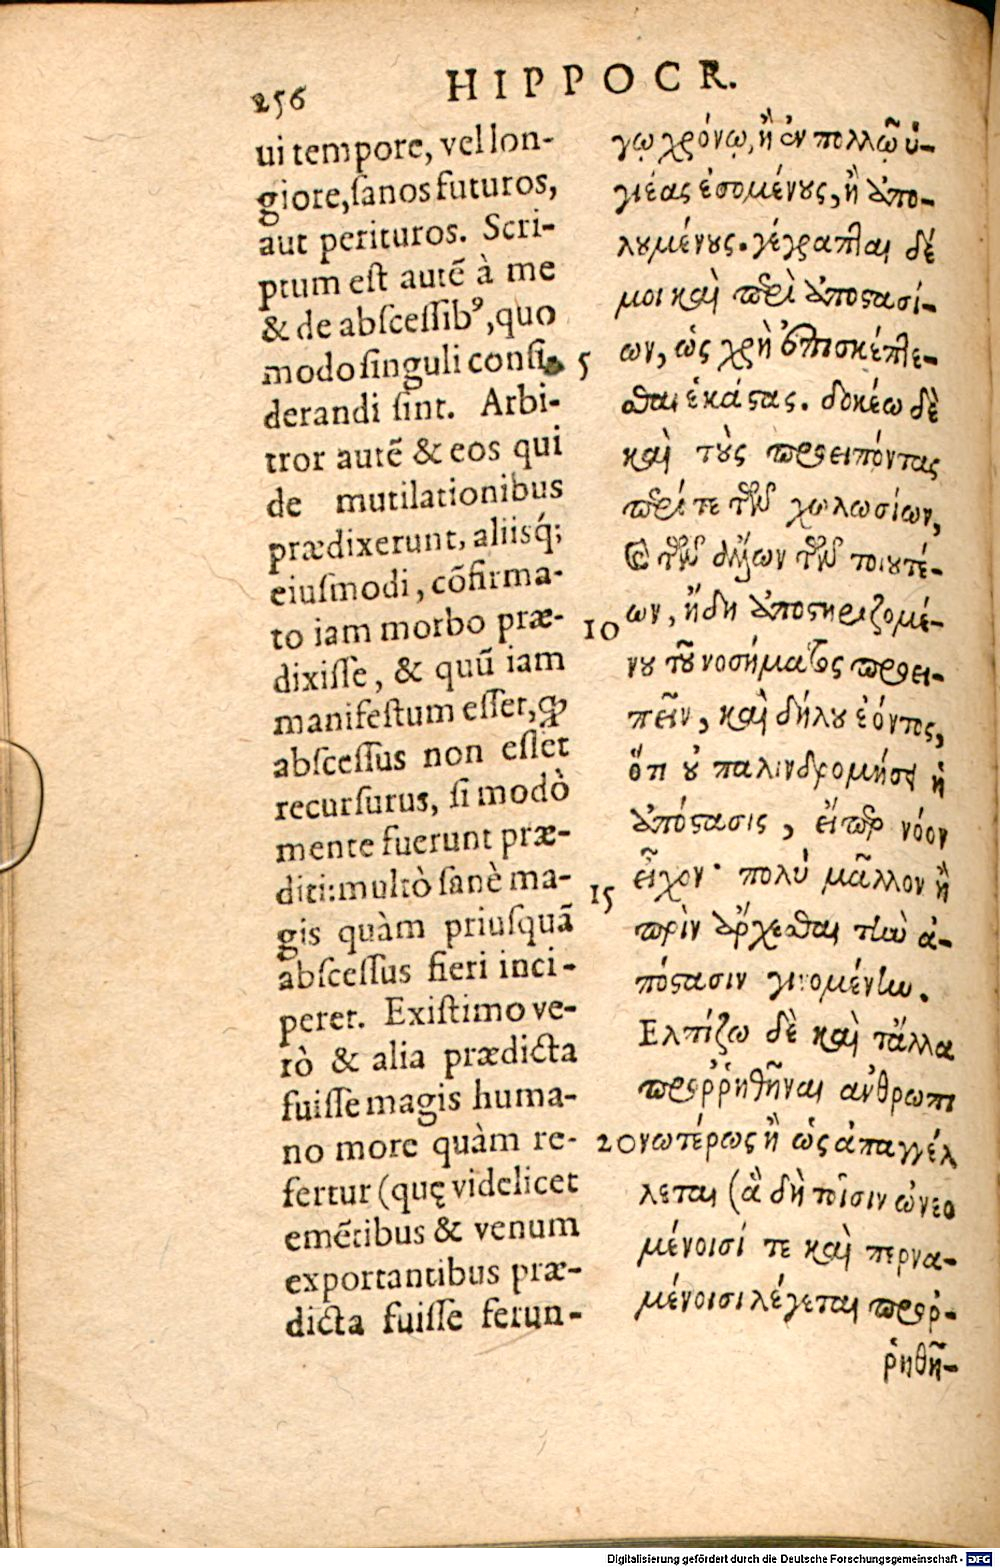 256 HIPPOCR.
ui tempore, vel lon-
giore, sanos futuros,
aut perituros. Scri-
ptum est autē à me
& de abscessibꝰ, quo
modo singuli consi-
derandi sint. Arbi-
tror autē & eos qui
de mutilationibus
prædixerunt, aliisq́;
eiusmodi, cōfirma-
to iam morbo præ-
dixisse, & quū iam
manifestum esset, ꝙ
abscessus non esset
recursurus, si modò
mente fuerunt præ-
diti: multò sanè ma-
gis quàm priusquā
abscessus fieri inci-
peret. Existimo ve-
rò & alia prædicta
fuisse magis huma-
no more quàm re-
fertur (quę videlicet
emētibus & venum
exportantibus præ-
dicta fuisse ferun-
γῳ χρόνῳ, ἢ ἐν πολλῷ ὑ-
γιέας ἐσομένους, ἢ ἀπο-
λουμένους. γέγραπται δέ
μοι καὶ περὶ ἀποστασί-
5 ων, ὡς χρὴ ἐπισκέπτε-
σθαι ἑκάστας. δοκέω δὲ
καὶ τοὺς προειπόντας
περί τε τῶν χωλωσίων,
καὶ τῶν ἄλλων τῶν τοιουτέ-
10 ων, ἤδη ἀποστηριζομέ-
νου τοῦ νοσήματος προει-
πεῖν, καὶ δήλου ἐόντος,
ὅτι οὐ παλινδρομήσει ἡ
ἀπόστασις, εἴπερ νόον
15 εἶχον· πολὺ μᾶλλον ἢ
πρὶν ἄρχεσθαι τὴν ἀ-
πόστασιν γινομένην.
Ελπίζω δὲ καὶ τἄλλα
προῤῥηθῆναι ἀνθρωπι
20 νωτέρως ἢ ὡς ἀπαγγέλ
λεται (ἃ δὴ τοῖσιν ὠνεο
μένοισί τε καὶ περνα-
μένοισι λέγεται προῤ-
ῥηθῆ-
Digitalisierung gefördert durch die Deutsche Forschungsgemeinschaft - DFG